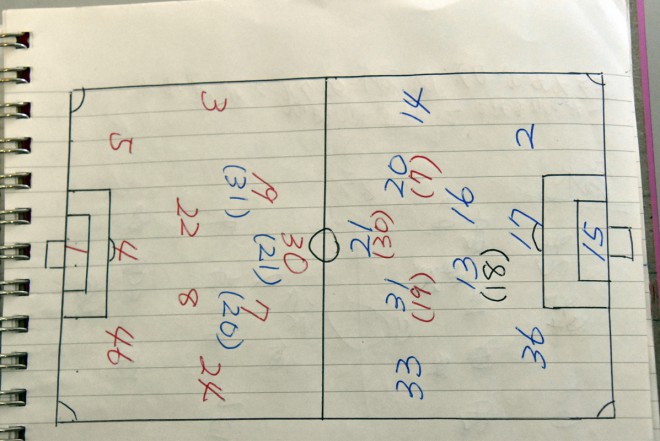 15
2 17 36
(81)
16 13
(7) (19)
14 20 31 33
(30)
21
30
(21)
19 7
(31) (20)
3 24
22 8
5 4 46
1